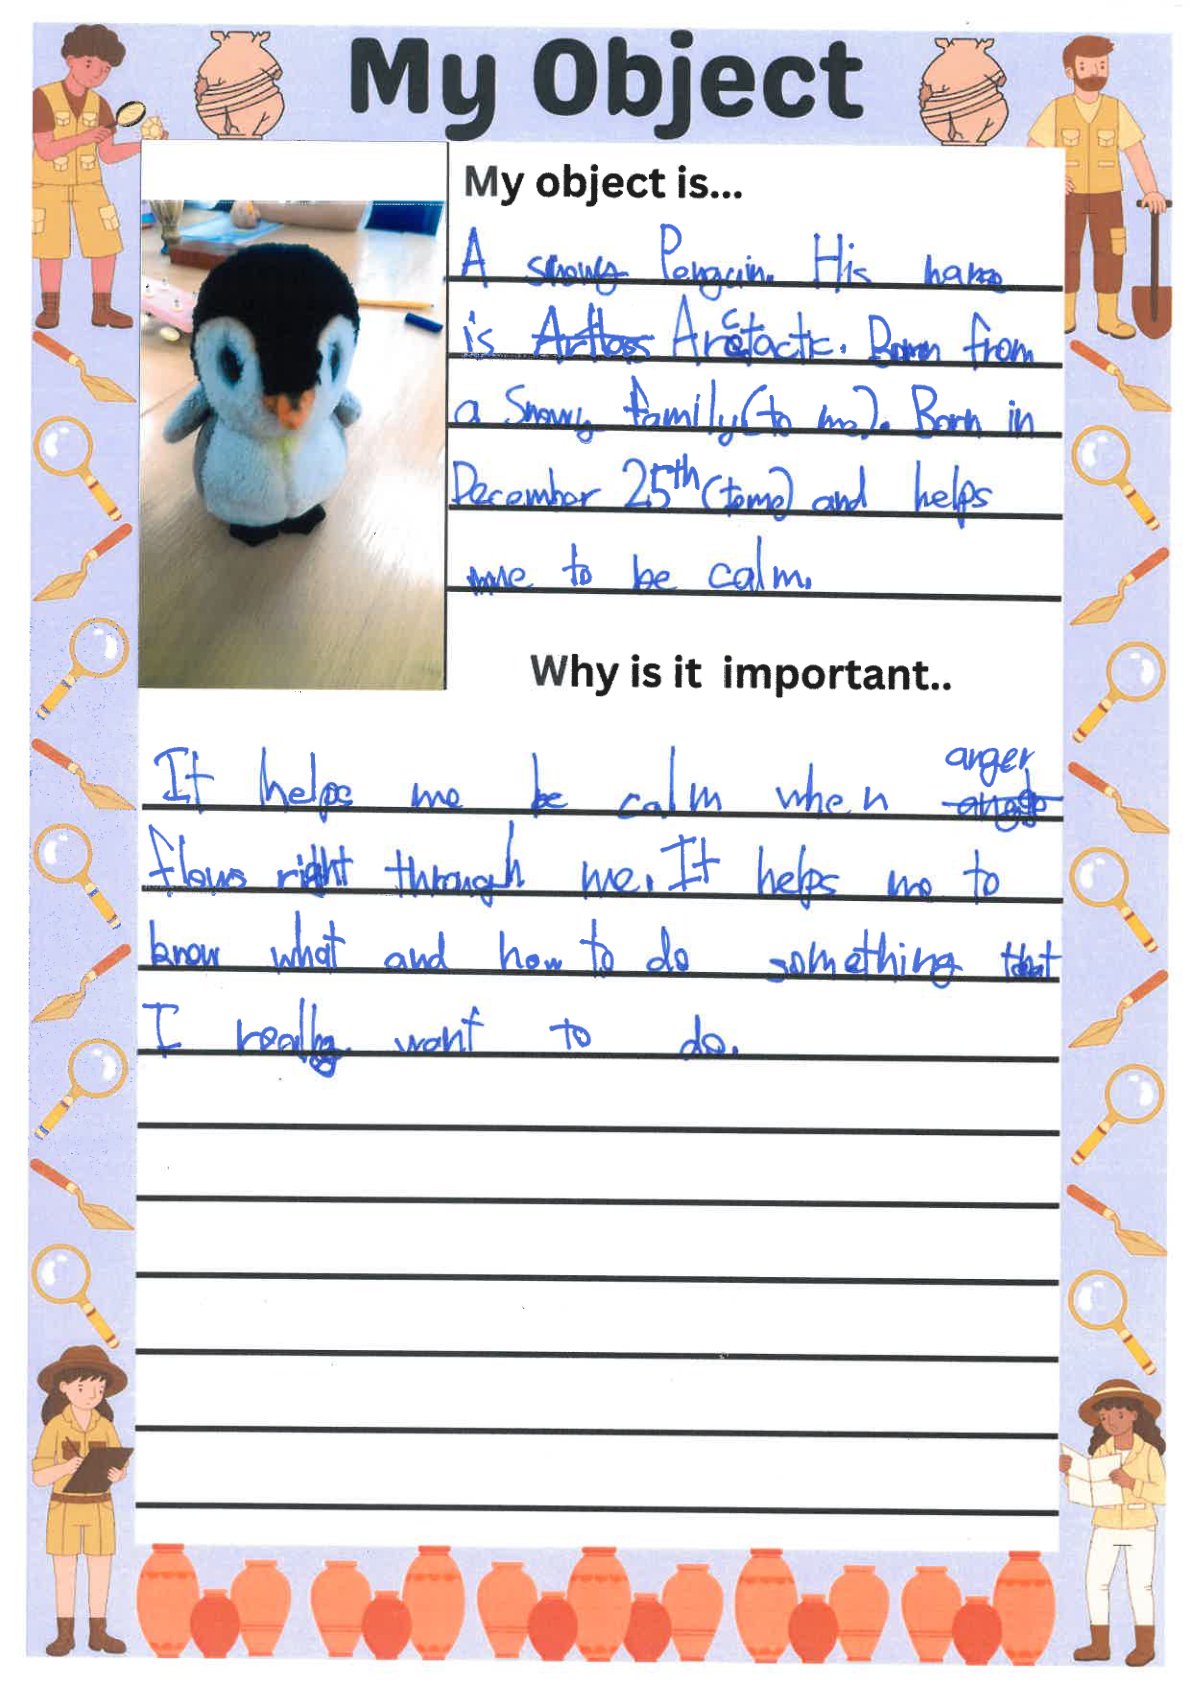 My Object
My object is...
A snowy Penguin. His name
is Arctactic. Born from
a Snowy family(to me). Born in
December 25th (to me) and helps
me to be calm.
Why is it important..
It helps me be calm when anger
flows right through me. It helps me to
know what and how to do something that
I really want to do.